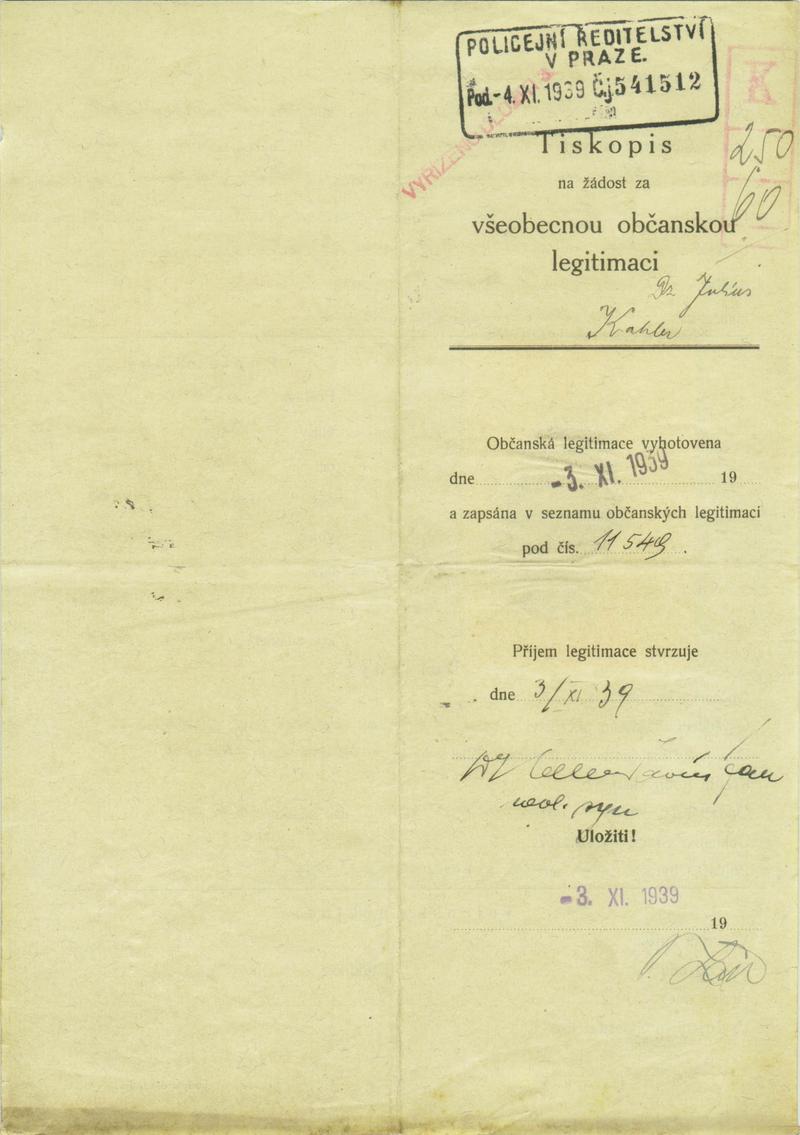 POLICEJNÍ ŘEDITELSTVÍ
V PRAZE.
Pod. -4. XI. 1939 Čj 541512
VYŘÍZENO
Tiskopis
250
na žádost za
60
všeobecnou občanskou
legitimaci
Dr Julius
Kahler
Občanská legitimace vyhotovena
dne -3. XI. 1939 19
a zapsána v seznamu občanských legitimací
pod čís. 11549.
Příjem legitimace stvrzuje
dne 3/XI 39
Uložiti!
-3. XI. 1939
19